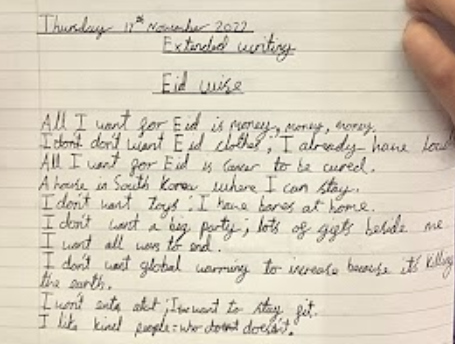 Thursday 17th November 2022
Extended writing
Eid wise
All I want for Eid is money, money, money.
I dont don't want Eid clothes, I already have
All I want for Eid is cancer to be cured.
A house in South Korea where I can stay.
I don't want toys; I have bares at home.
I don't want a big party; lots of gifts beside me
I want all wars to end.
I don't want global warming to increase because it's killing
the earth.
I won't alot; I want to stay fit.
I like kind people: who doesnt doesn't.